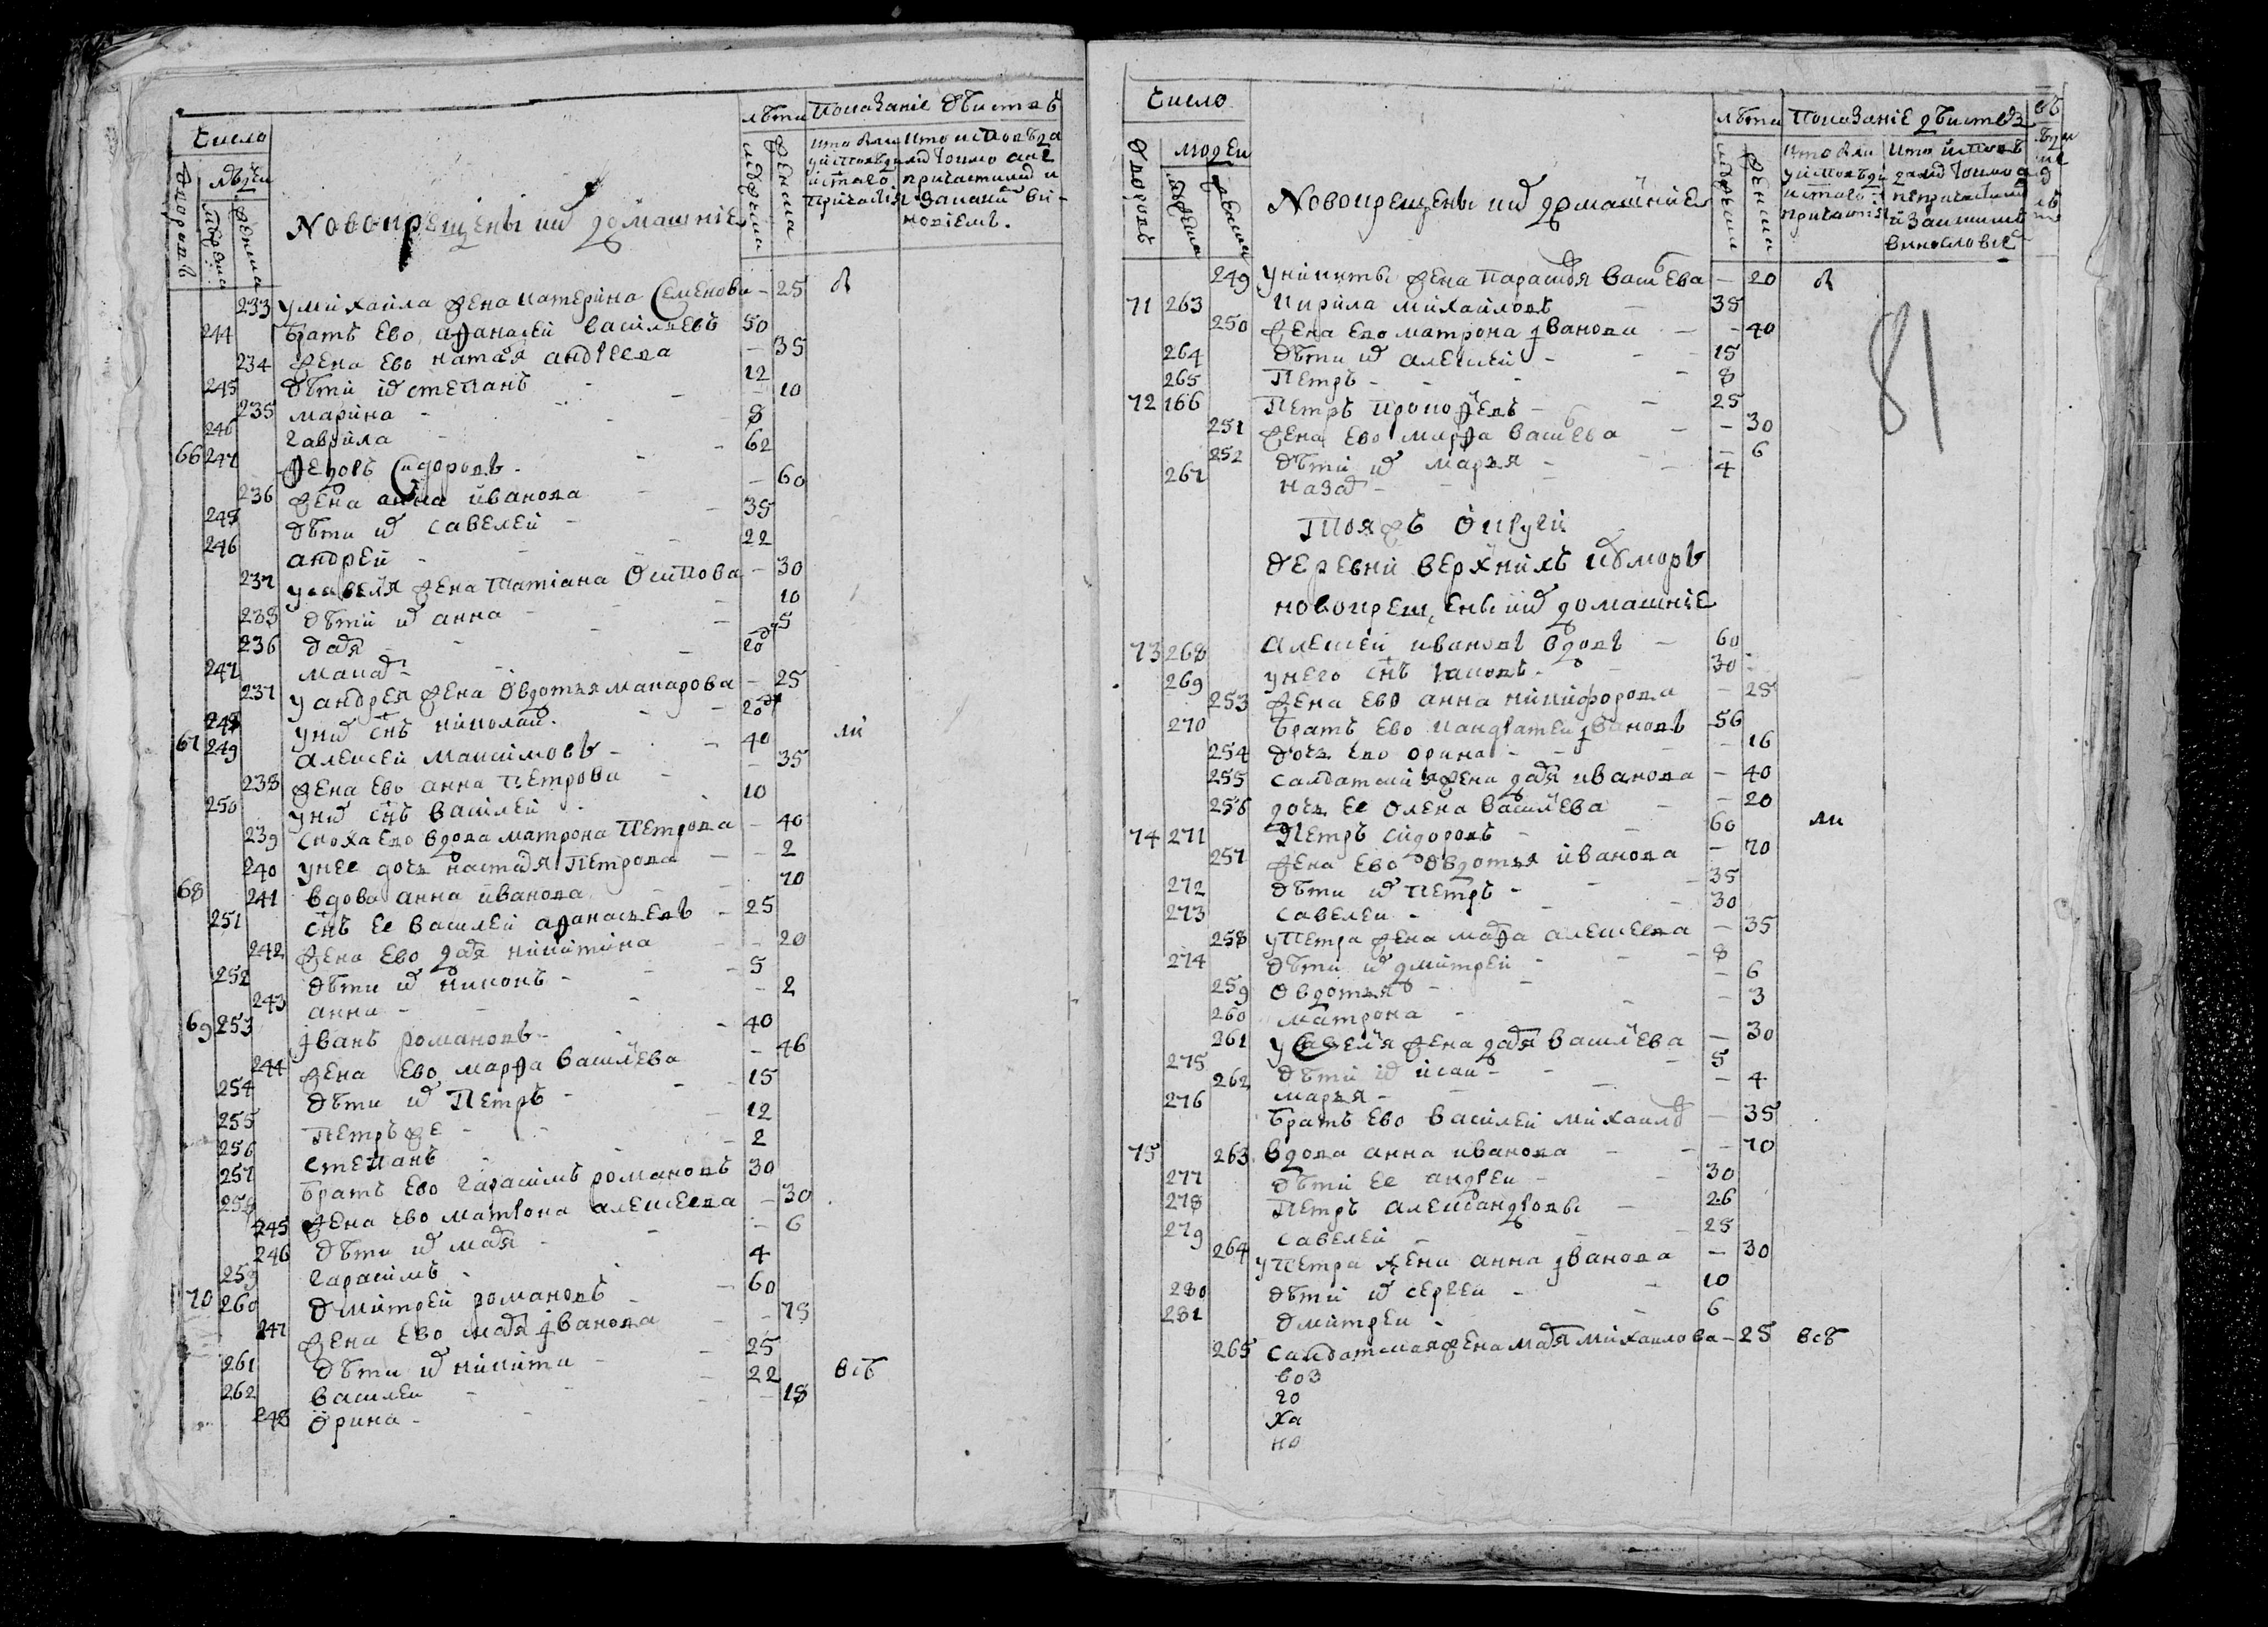 Число
лѣта Показаніе дѣиствъ
дворовъ людеи
мужеска женска
Новокрещены их домашние
мужеска женска
233 У михаила жена катерина Семенова - 25 б
244 братъ ево афанасеи василѣевъ 50
234 жена ево настася андреева - 35
245 дѣти их степанъ - 12
235 марина - 10
246 гаврила - 8
66 247 Федоръ Сидоровъ - 62
236 жена анна иванова - 60
248 дѣти их савелеи - 35
246 андреи - 22
237 у савеля жена Татіана Осипова - 30
238 дѣти их анна - 10
236 даря - 5
247
237 у андрея жена Овдотья макарова - 25
248 у них снъ николаи
67 249 алексеи максимовъ - 40 ли
238 жена ево анна Петрова - 35
250 у них снъ василеи 10
239 сноха ево вдова матрона Петрова - 40
240 у нее дочь настася Петрова - 2
68 241 вдова анна иванова - 70
251 снъ ее василеи афанасьевъ - 25
242 жена ево даря никитина - 20
252 дѣти их никонъ - 5
243 анна - 2
69 253 іванъ романовъ - 40
244 жена ево марфа васил ева - 46
254 дѣти их Петръ - 15
255 Петръ же - 12
256 степанъ - 2
257 братъ ево гарасимъ романовъ 30
258
245 жена ево матрона алексеева - 30
246 дѣти их маря - 6
259 гарасимъ - 4
70 260 Дмитреи романовъ - 60
247 жена ево маря іванова - 75
261 дѣти их никита - 25
262 василеи - 22 всѣ
248 Орина - 18
Число
лѣта Показаніе дѣиствъ
дворовъ людеи
мужеска женска
Новокрещены их домашние
мужеска женска
249 у никиты жена Парасковя Василева - 20 б
71 263 Кирила михаиловъ - 35
250 жена ево матрона іванова - 40
264 дѣти их алексеи - 15
265 Петръ - 8
72 166 Петръ Прокофевъ - 25
251 жена ево марфа Василева - 30
252 дѣти их марья - 6
267 назар - 4
Тояжъ Округи
деревни верхнихъ
новокрещены их домашние
73 268 алексеи ивановъ вдовъ - 60
269 у него снъ яковъ - 30
253 жена ево анна никифорова - 25
270 братъ ево кандратеи івановъ 56
254 дочь ево орина - 16
255 салдатская жена даря иванова - 40
256 дочь ее Олена василева - 20
74 271 Петръ сидоровъ - 60 ли
257 жена ево Овдотья иванова - 70
272 дѣти их Петръ - 35
273 савелеи - 30
258 у Петра жена марфа алексеева - 35
274 дѣти их дмитреи - 8
259 Овдотья - 6
260 матрона - 3
261 у Савеля жена даря васил ева - 30
275 дѣти их исаи - 5
262 марья - 4
276 братъ ево василеи михаилов - 35
75 263 вдова анна иванова - 70
277 дѣти ее андреи - 30
278 Петръ александровы - 26
279 савелеи - 25
264 у Петра жена анна іванова - 30
280 дѣти их сергеи - 10
281 дмитреи - 6
265 салдатская жена маря михаилова - 25 всѣ
воз
го
ха
но
81